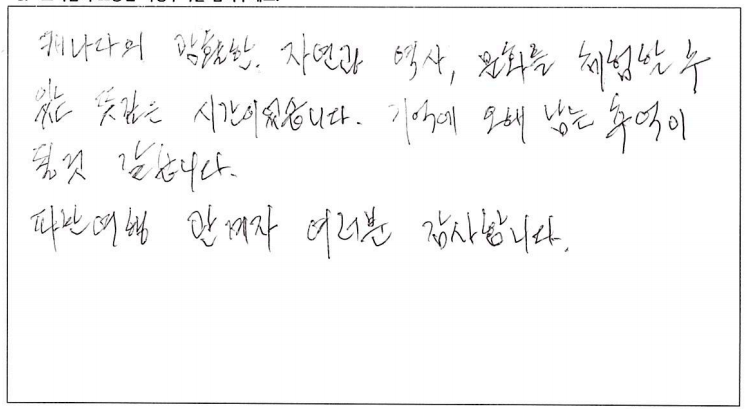 캐나다의 광활한. 자연과 역사, 문화를 체험할 수
있는 뜻깊은 시간이었습니다. 기억에 오래 남는 추억이
될것 같습니다.
파란여행 관계자 여러분 감사합니다.